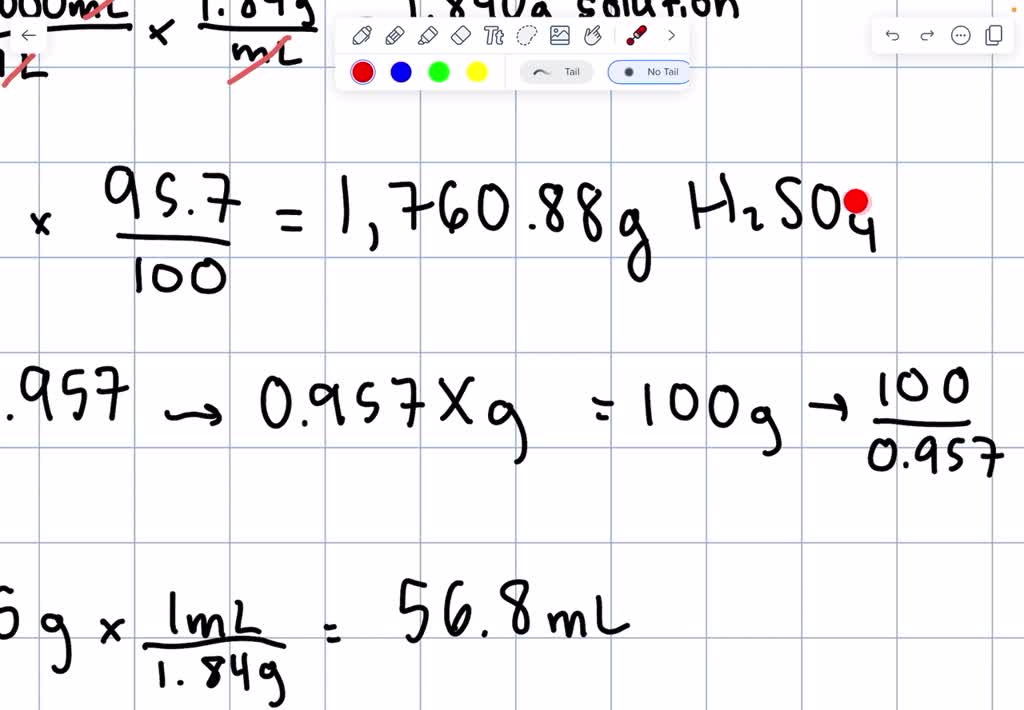 000mL × 1.84g 1,840g solution
1L mL
Tt
Tail No Tail
× 95.7/100 = 1,760.88g H₂SO₄
.957 → 0.957Xg = 100g → 100/0.957
g × 1mL/1.84g = 56.8mL